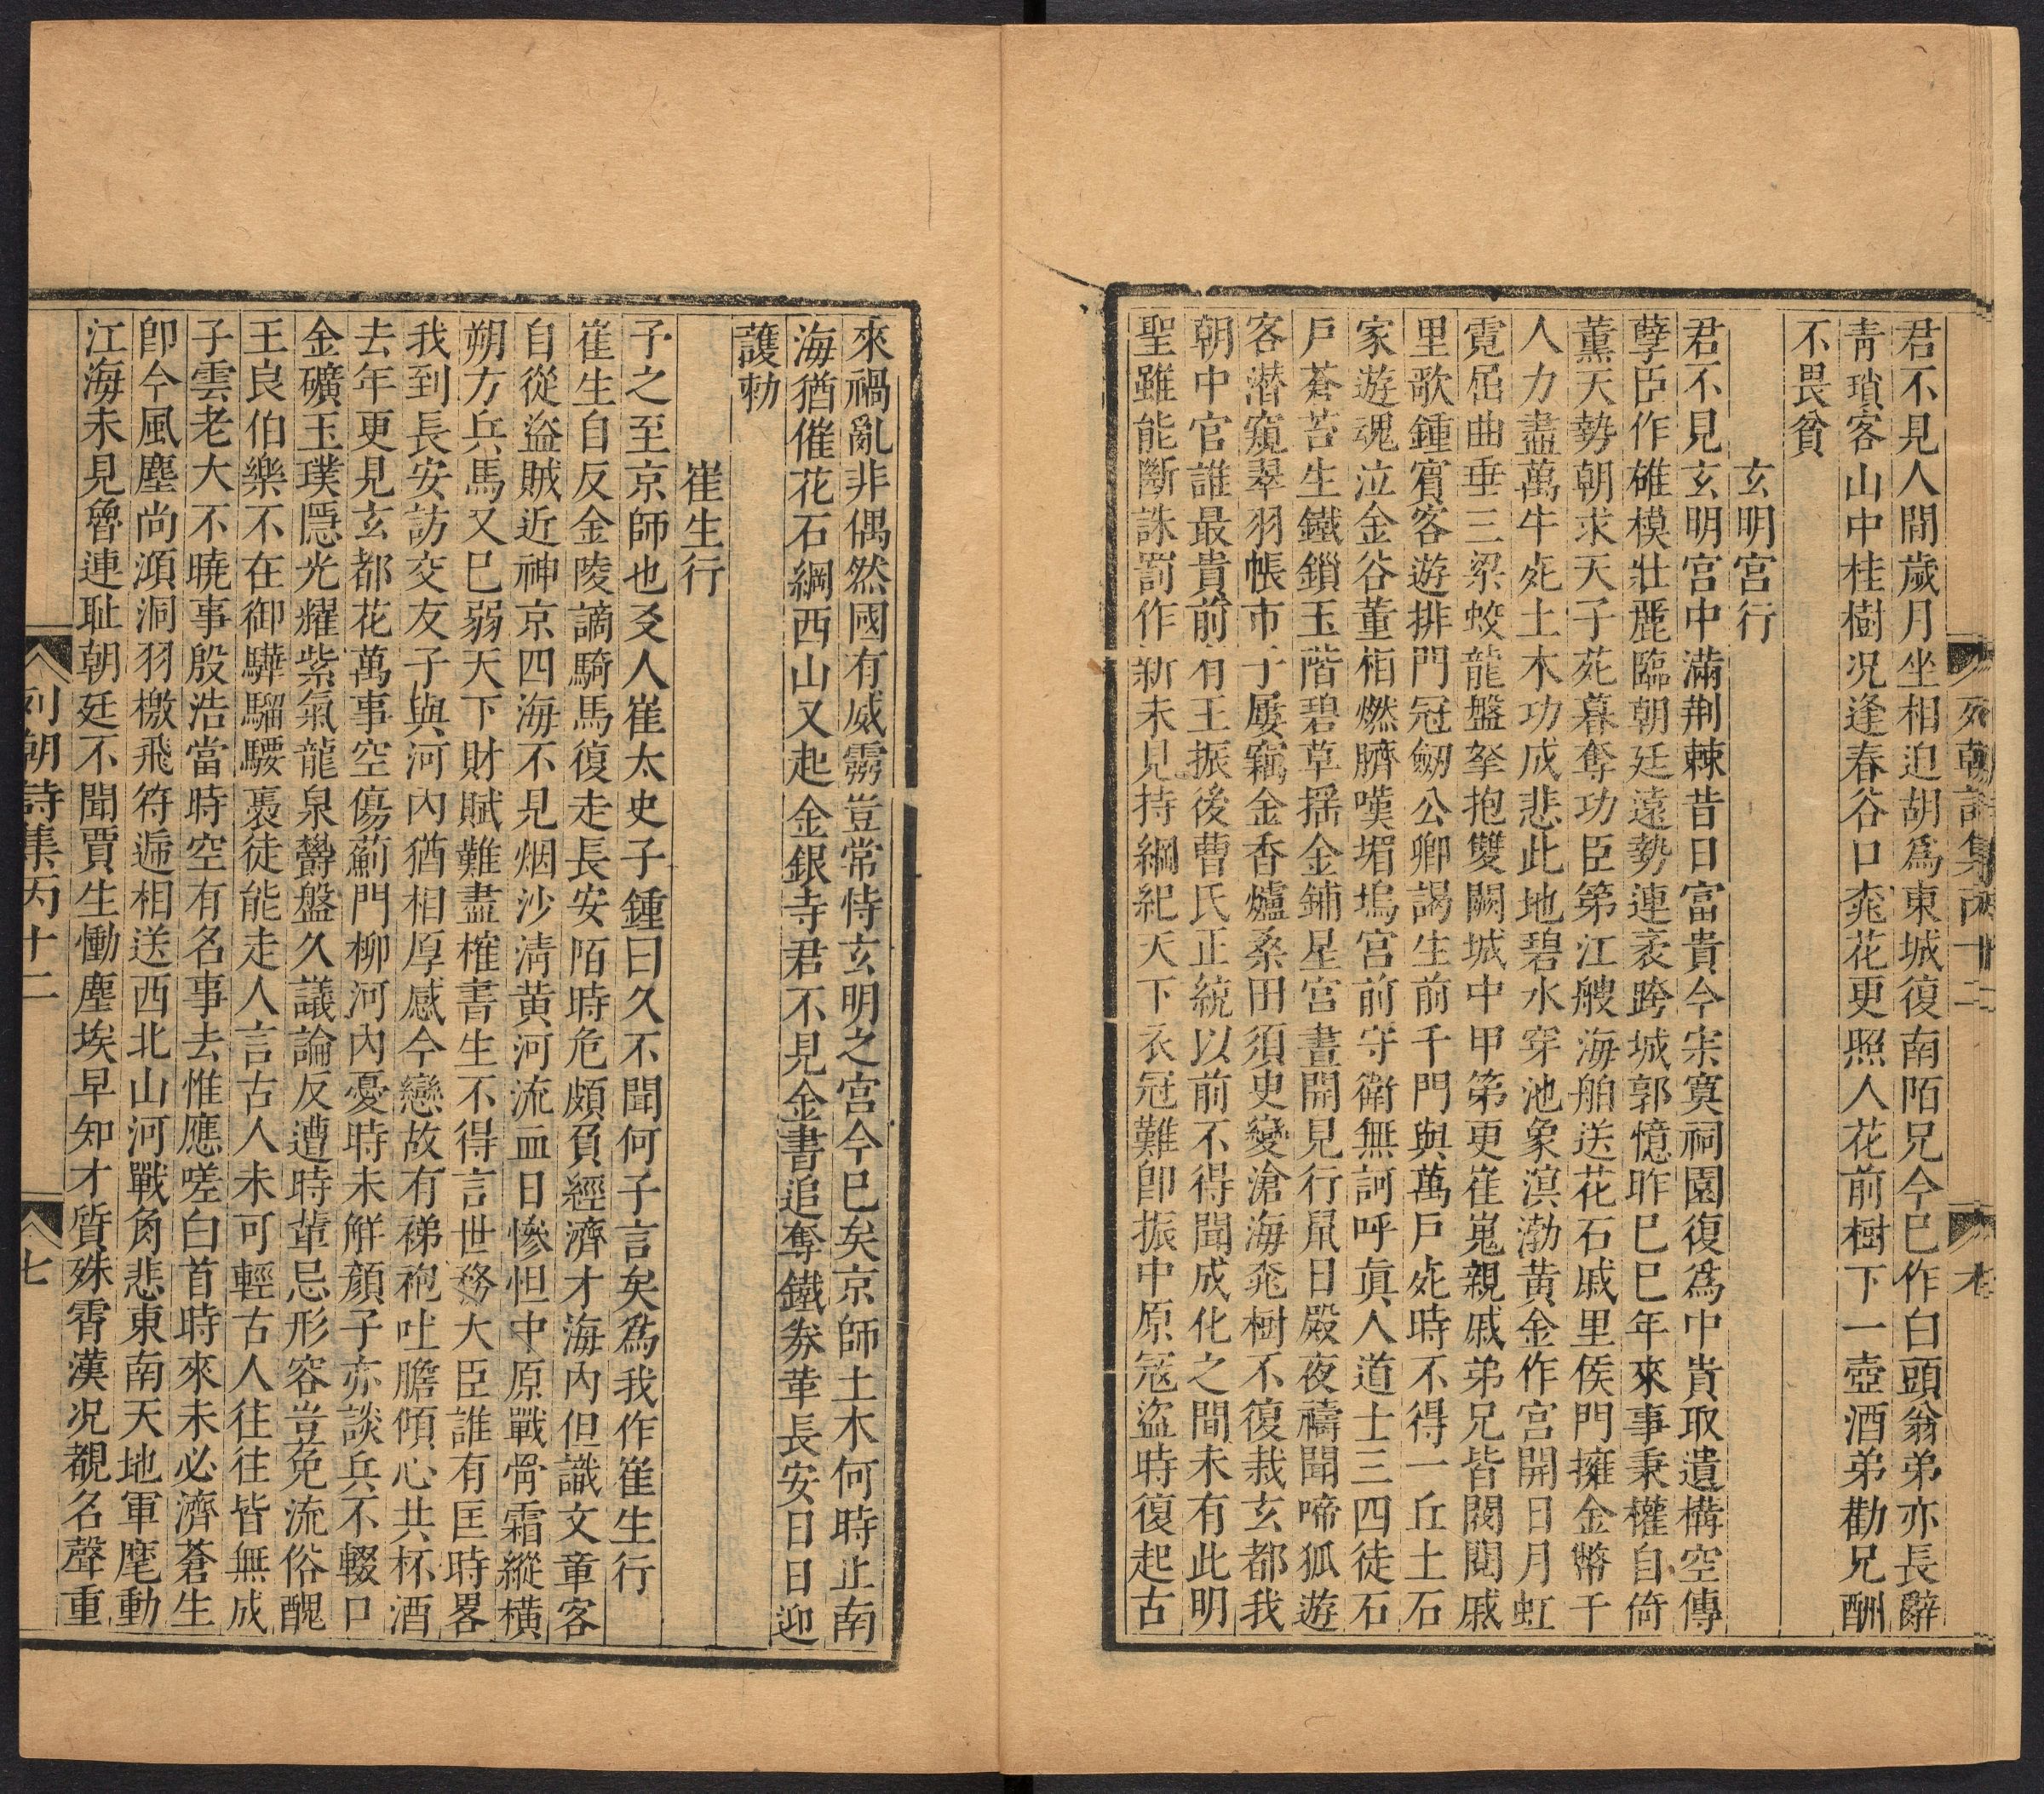 君不見人間歲月坐相迫胡爲東城復南陌兄今巳作白頭翁弟亦長辭
靑瑣客山中桂樹况逢春谷口桃花更照人花前樹下一壺酒弟勸兄酬
不畏貧
玄明宮行
君不見玄明宮中滿荆棘昔日富貴今宋寞祠園復爲中貴取遺構空傳
孽臣作碓模壯麗臨朝廷遠勢連袤跨城郭憶昨巳巳年來事秉權自倚
薰天勢朝求天子苑暮奪功臣第江艘海舶送花石戚里侯門擁金幣千
人力盡萬牛死土木功成悲此地碧水穿池象溟渤黄金作宮開日月虹
霓屈曲垂三梁蛟龍盤拏抱雙闕城中甲第更崔嵬親戚弟兄皆閥閱戚
里歌鍾賓客遊排門冠劒公卿謁生前千門與萬戶死時不得一丘土石
家遊魂泣金谷董相燃臍嘆堳塢宮前守衛無訶呼眞人道士三四徒石
戶蒼苔生鐵鎖玉階碧草揺金鋪星宮晝開見行鼠日殿夜禱聞啼狐遊
客潜窺翠羽帳市子屢竊金香爐桑田須史變滄海桃樹不復栽玄都我
朝中官誰最貴前有王振後曹氏正統以前不得聞成化之間未有此明
聖雖能斷誅罰作新未見持綱紀天下衣冠難卽振中原寇盜時復起古
列朝詩集丙十二
來禍亂非偶然國有威靈豈常恃玄明之宮今巳矣京師土木何時止南
海猶催花石綱西山又起金銀寺君不見金書追奪鐵券革長安日日迎
護勅
崔生行
予之至京師也友人崔太史子鍾曰久不聞何子言矣爲我作崔生行
崔生自反金陵謫騎馬復走長安陌時危頗負經濟才海內但識文章客
自從盜賊近神京四海不見烟沙淸黄河流血日慘怛中原戰骨霜縱橫
朔方兵馬又巳弱天下財賦難盡榷書生不得言世務大臣誰有匡時畧
我到長安訪交友子與河內猶相厚感今戀故有綈袍吐膽傾心共杯酒
去年更見玄都花萬事空傷薊門柳河內憂時未觧顔子亦談兵不輟口
金礦玉璞隱光耀紫氣龍泉鬱盤久議論反遭時輩忌形容豈免流俗醜
王良伯樂不在御驊騮騕褭徒能走人言古人未可輕古人往往皆無成
子雲老大不曉事殷浩當時空有名事去惟應嗟白首時來未必濟蒼生
卽今風塵尚澒洞羽檄飛符遞相送西北山河戰角悲東南天地軍麾動
江海未見魯連耻朝廷不聞賈生慟塵埃早知才質殊霄漢况覩名聲重
列朝詩集丙十二
七